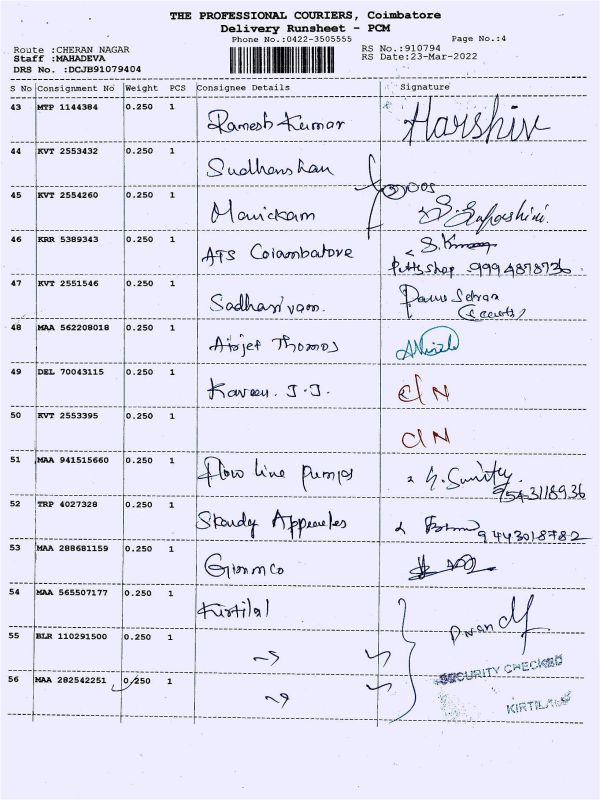 THE PROFESSIONAL COURIERS, Coimbatore
Delivery Runsheet - PCM
Phone No.:0422-3505555 Page No.:4
Route :CHERAN NAGAR RS No.:910794
Staff :MAHADEVA RS Date:23-Mar-2022
DRS No. :DCJB91079404
S No Consignment No Weight PCS Consignee Details Signature
43 MTP 1144384 0.250 1 Ramesh Kumar Harshiv
44 KVT 2553432 0.250 1 Sudhanshan
45 KVT 2554260 0.250 1 Manickam
46 KRR 5389343 0.250 1 ATS Coiambatore
47 KVT 2551546 0.250 1 Sadhasivam.
48 MAA 562208018 0.250 1 Thomos
49 DEL 70043115 0.250 1 Kaveen. J.J. C/N
50 KVT 2553395 0.250 1 C/N
51 MAA 941515660 0.250 1 Flow line pumps
9543118936
52 TRP 4027328 0.250 1
9443018782
53 MAA 288681159 0.250 1
54 MAA 565507177 0.250 1 Kirtilal
55 BLR 110291500 0.250 1
56 MAA 282542251 0.250 1
SECURITY CHECKED
KIRTILALS